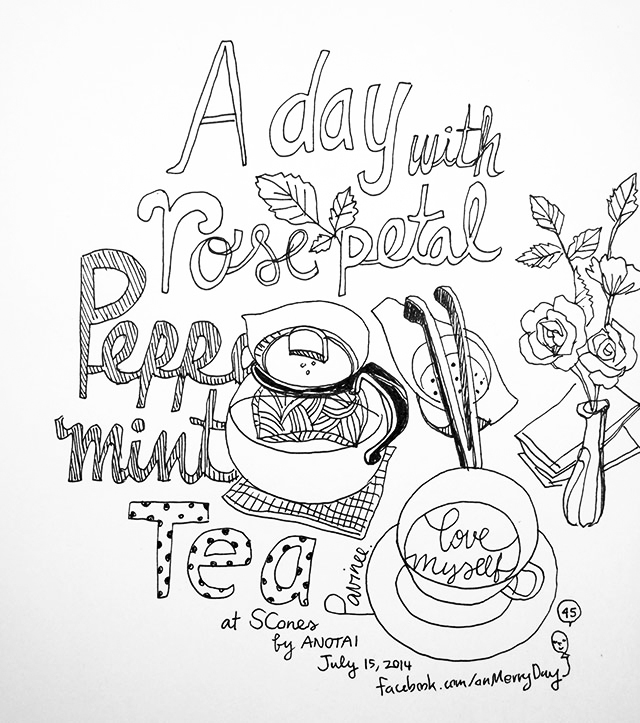 A day with
rose petal
Peppe
mint
Tea
love
myself
Pavinee.
at SCones
by ANOTAI
July 15, 2014
45
facebook.com/anMerryDay